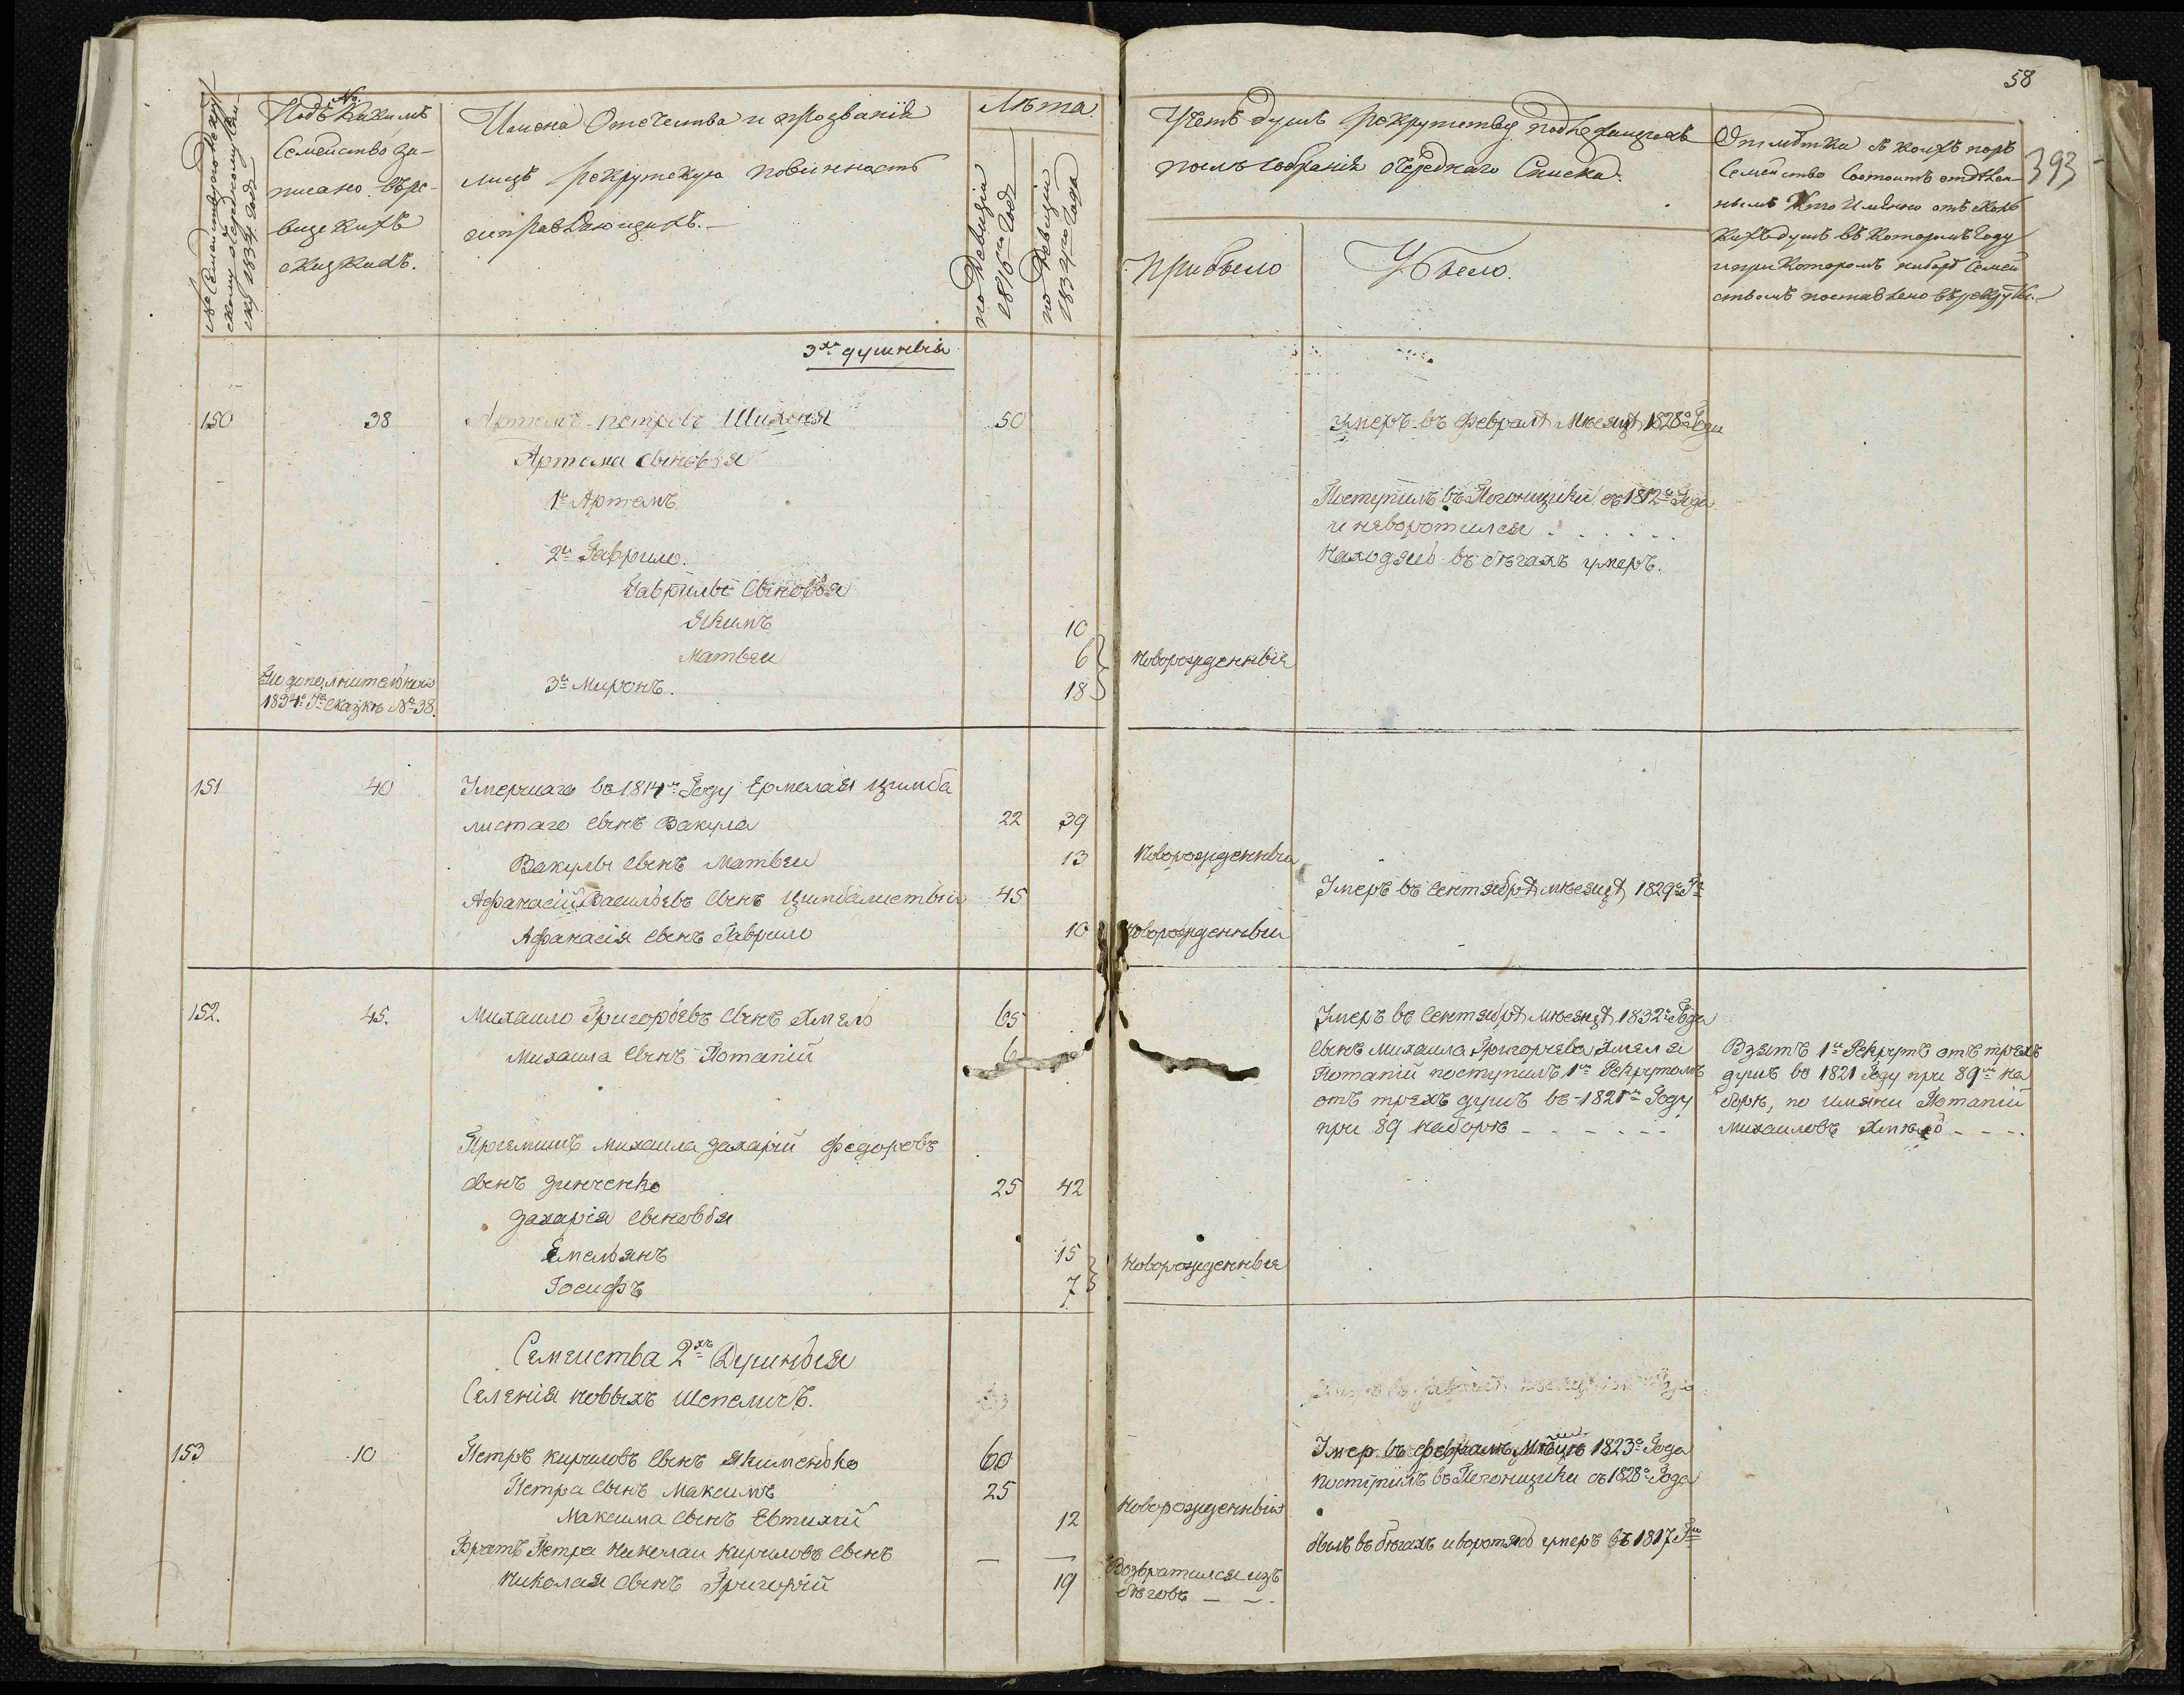 58
393
№ Семейства по рекрут
скому очередному спи-
ску 1834 года
№
Подъ какимъ
Семейство за-
писано въ ре-
визкихъ
сказкахъ.
Имена Отечества и прозванія
лицъ рекрутскую повинность
исправляющихъ.
Лѣта
по Ревизіи
1816го года
по Ревизіи
1834го года
Учетъ душъ рекрутству подлежащихъ
послѣ собранія очереднаго Списка.
Прибыло
Убыло.
Отмѣтка съ коихъ поръ
Семейство состоитъ отдѣль
нымъ кто имянно отъ
душъ въ которомъ году
и при которомъ наборѣ Семей
ствомъ поставлено въ рекруты.
3хъ душныя
150 38 Артемъ Петровъ Шихеня 50 умеръ въ Февралѣ Мѣсяцѣ 1828го Года
Артема сыновья
1й Артемъ Поступилъ въ Погонщики съ 1812го Года
и неворотился
2й Гаврило. Находясь въ бѣгахъ умеръ.
Гаврилы Сыновья
Якимъ 10
Матвеи 6 Новорожденныя
По дополнительной
1834го Го сказке № 38. 3й Миронъ. 18
151 40 Умершаго въ 1814м Году Ермолая Цимба
листаго сынъ Вакула 22 39
Вакулы сынъ Матвеи 13 Новорожденныи
Афанасій Васильевъ Сынъ Цимбалистыи 45 Умеръ въ Сентябрѣ мѣсяцѣ 1829го Го
Афанасія сынъ Гаврило 10 Новорожденныи
152. 45. Михаило Григорьевъ Сынъ Хмель 65 Умеръ въ Сентябрѣ мѣсяцѣ 1832го Года
Михаила Сынъ Потапій 6 Сынъ Михаила Григорьева Хмеля Взятъ 1й Рекрутъ отъ трехъ
Потапій поступилъ 1мъ Рекрутомъ душъ въ 1821 Году при 89мъ на
отъ трехъ душъ въ 1821м Году борѣ, по имяни Потапій
при 89 наборѣ Михаиловъ Хмель
Приемышъ Михаила Захарій Федоровъ
сынъ Зинченко 25 42
Захарія Сыновья
Емельянъ 15
Іосифъ 7 Новорожденныя
Семеиства 2хъ Душныя
Селенія Новыхъ Шепеличъ.
153 10 Петръ Кириловъ Сынъ Якименько 60 Умер въ Февралѣ Мѣсяцѣ 1823го Года
Петра Сынъ Максимъ 25 поступилъ въ Погонщики съ 1828го Года
Максима сынъ Евтихій 12 Новорожденный
Братъ Петра Николаи Кириловъ Сынъ — — былъ въ бѣгахъ и воротясь умеръ въ 1817 Го
Николая Сынъ Григорій 19 Возвратился изъ
бѣговъ